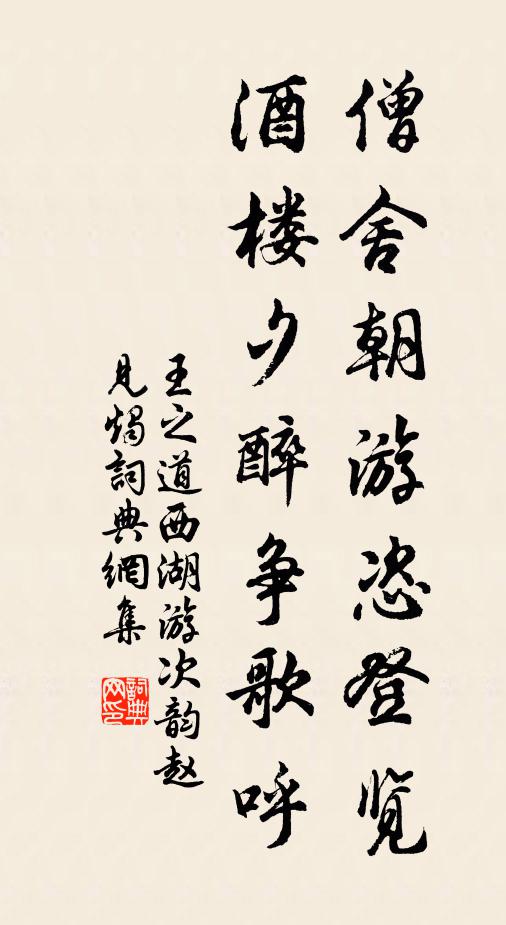 僧舍朝游恣登览
酒楼夕醉争歌呼
王之道西湖游次韵赵
见烛詞典網集
詞典网印